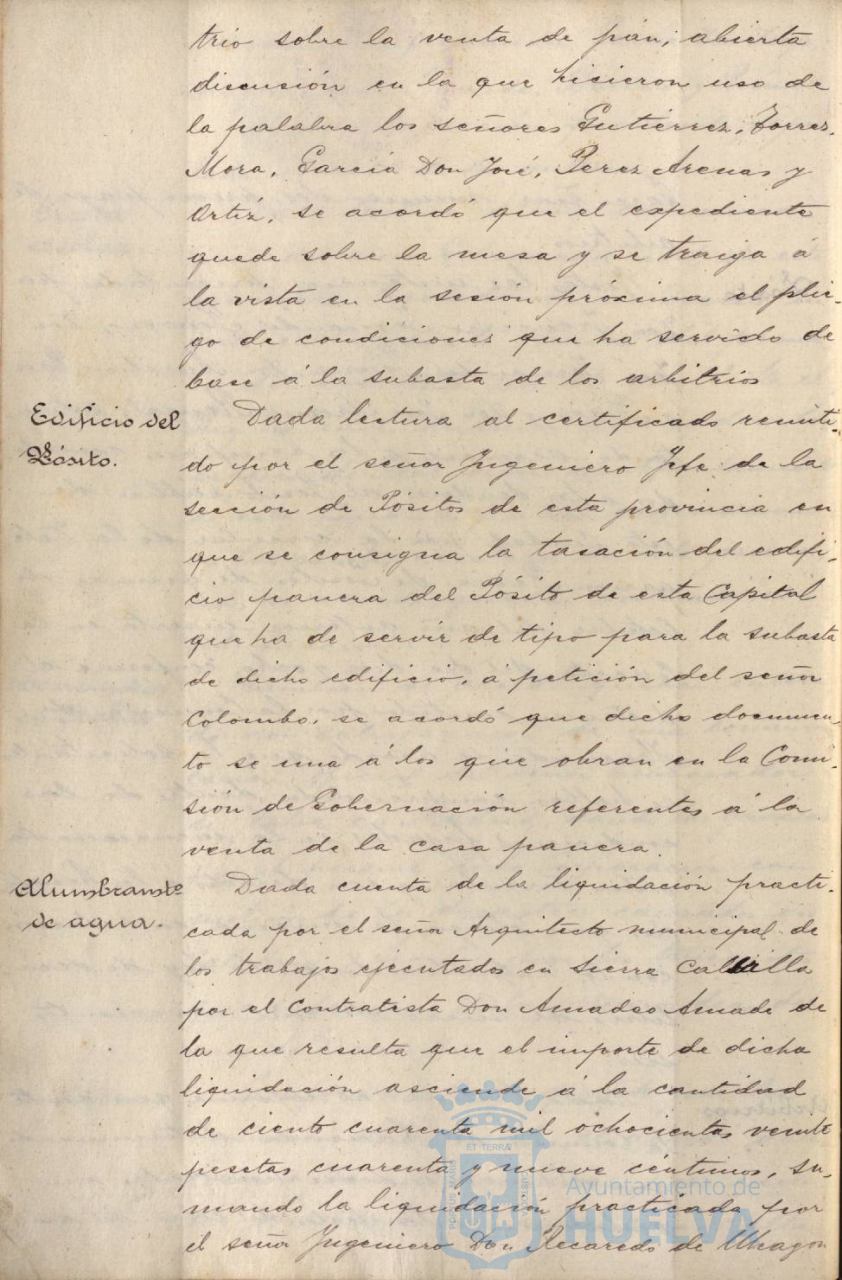 trio sobre la venta de pan; abierta
discusión en la que hicieron uso de
la palabra los señores Gutiérrez, Torres,
Mora, García Don José, Perez Arenas y
Ortiz, se acordó que el expediente
quede sobre la mesa y se traiga á
la vista en la sesión próxima el plie-
go de condiciones que ha servido de
base á la subasta de los arbitrios
Edificio del
Pósito.
Dada lectura al certificado remiti-
do por el señor Ingeniero Jefe de la
sección de Pósitos de esta provincia en
que se consigna la tasación del edifi-
cio panera del Pósito de esta Capital
que ha de servir de tipo para la subasta
de dicho edificio, á petición del señor
Colombo, se acordó que dicho documen-
to se una á los que obran en la Comi-
sión de Gobernación referentes á la
venta de la casa panera.
Alumbramto
de agua.
Dada cuenta de la liquidación practi-
cada por el señor Arquitecto municipal de
los trabajos ejecutados en Sierra
por el Contratista Don Amadeo Amade de
la que resulta que el importe de dicha
liquidación asciende á la cantidad
de ciento cuarenta mil ochocientas veinte
pesetas cuarenta y nueve céntimos, su-
mando la liquidación practicada por
el señor Ingeniero Don Recaredo de Uhagon
Ayuntamiento de
HUELVA